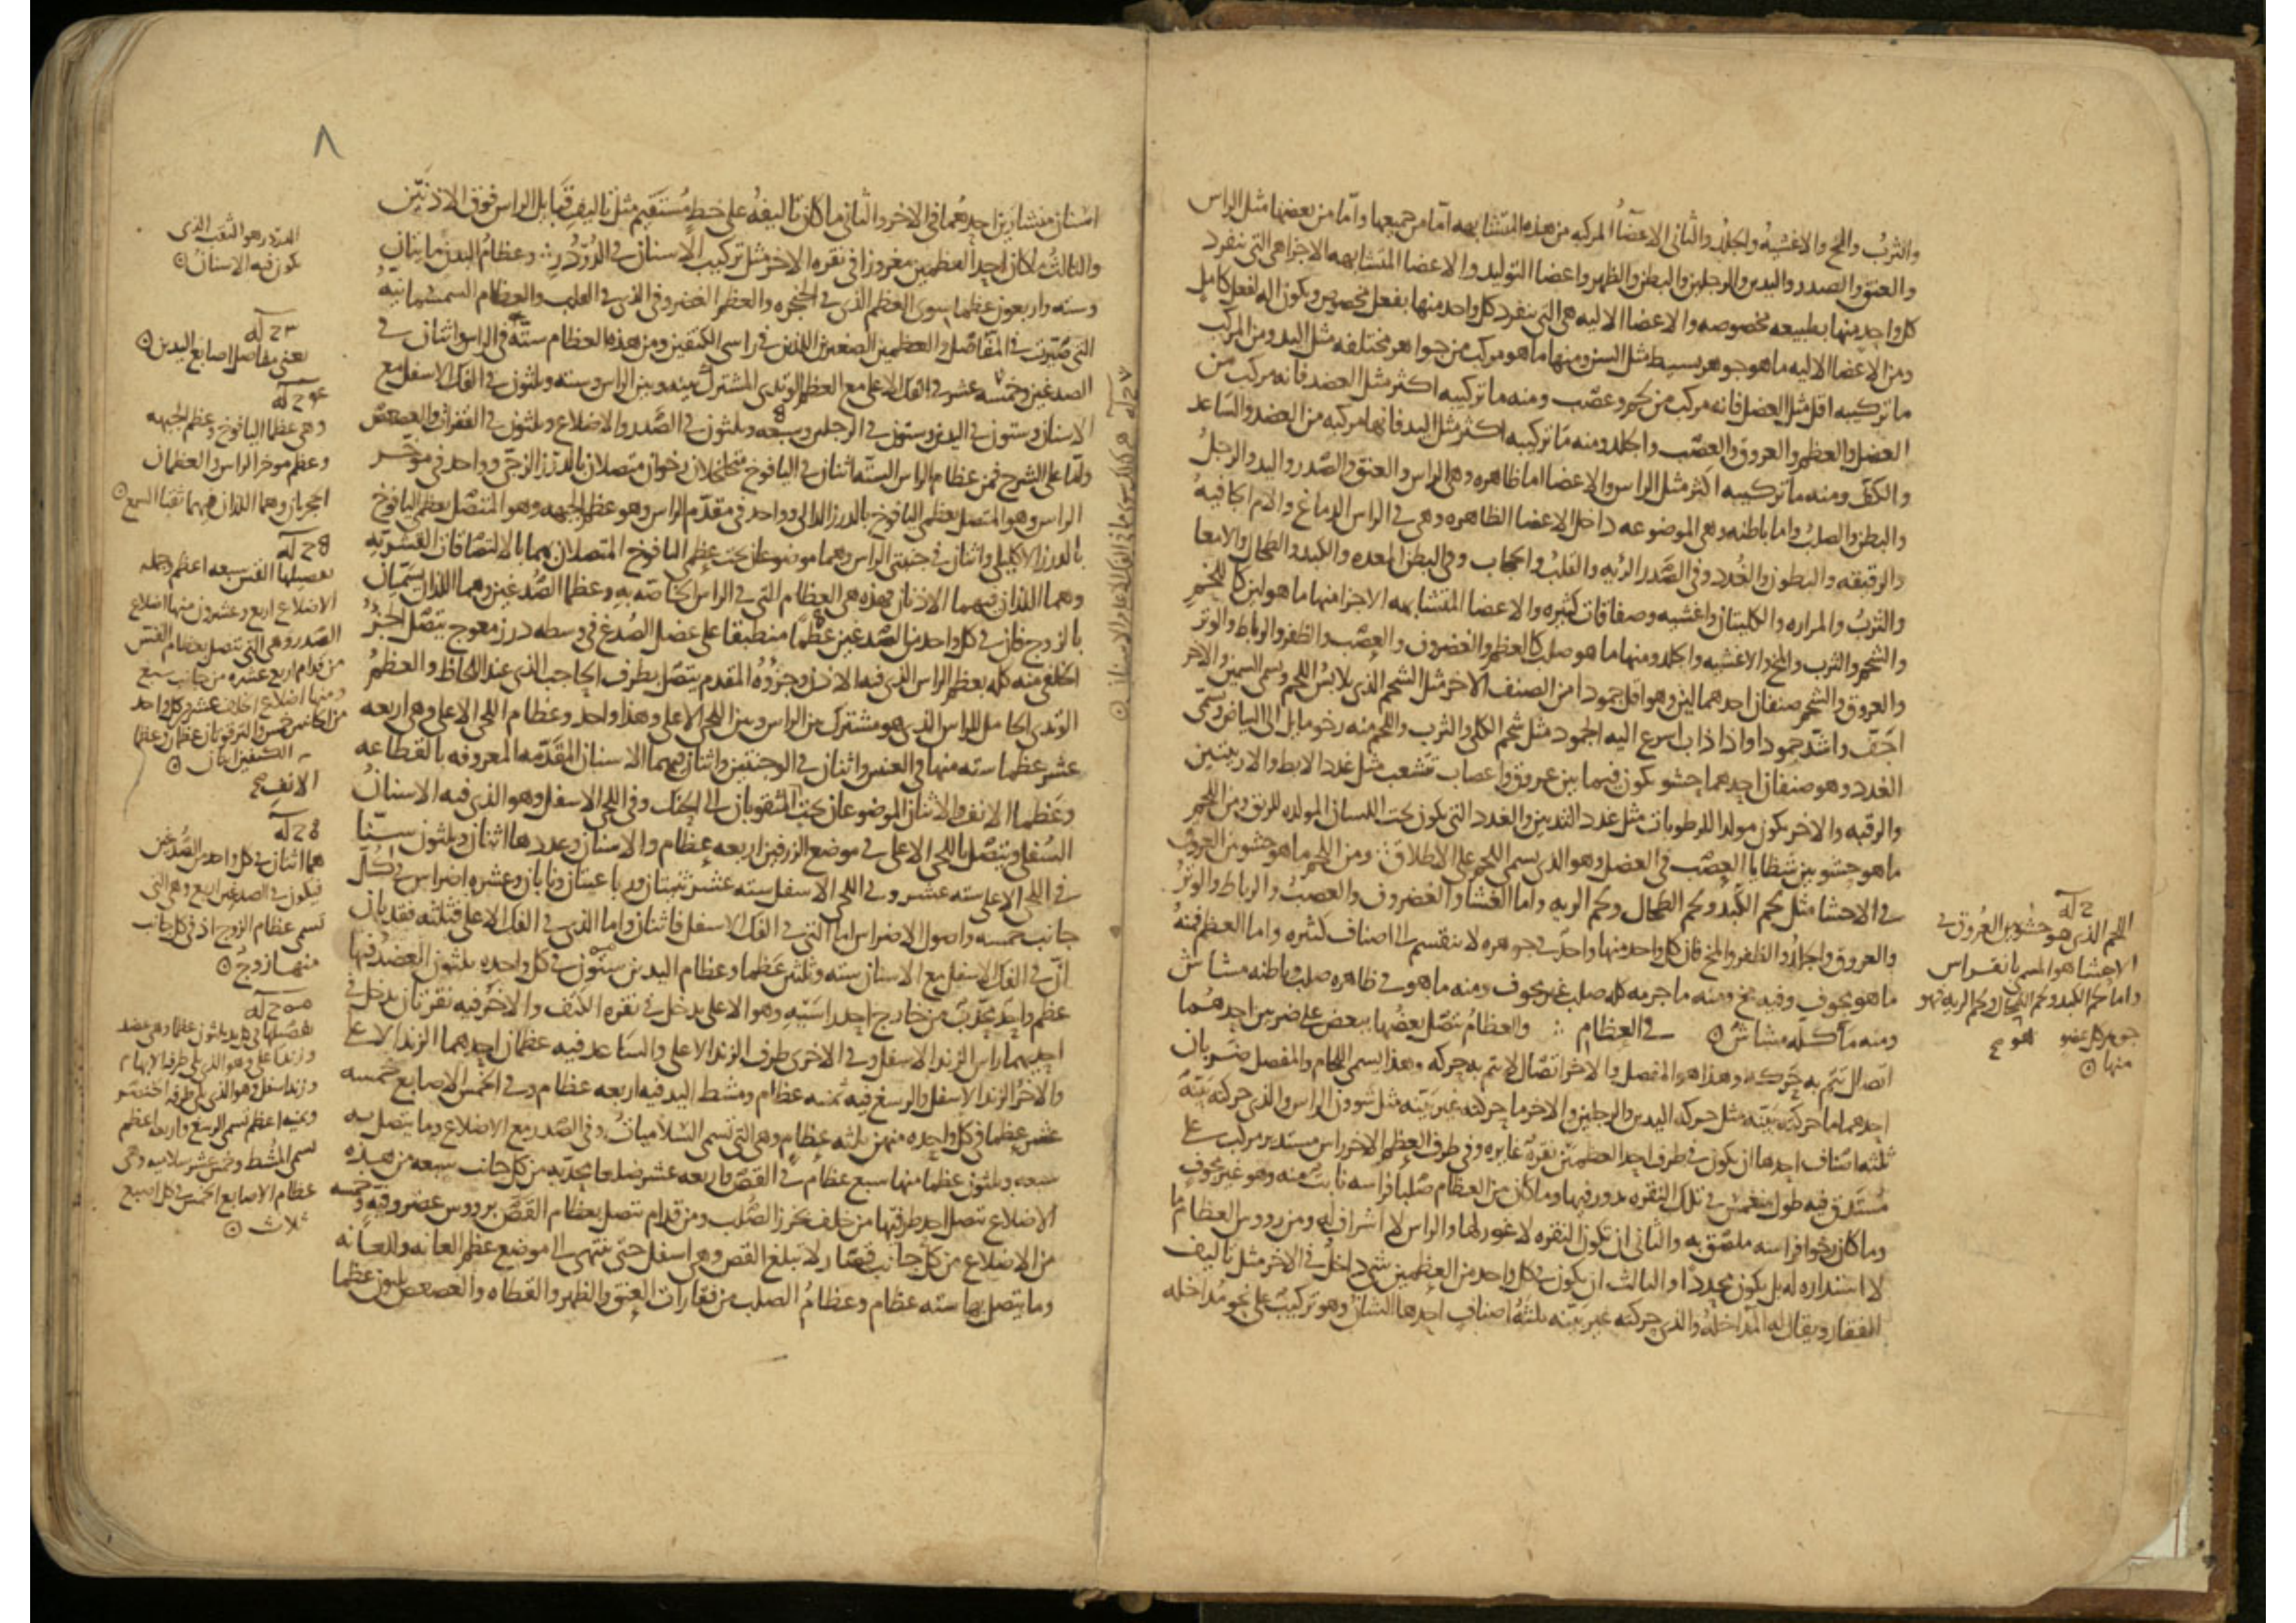 والثرب والمخ والاغشيه والجلد والثانى الاعضآء المركبه من هذه المتشابهه اما من جميعها واما من بعضها مثل الراس
والعنق والصدر واليدين والرجلين والبطن والظهر واعضا التوليد والاعضا المتشابهه الاجزا هى التى ينفرد
كل واحد منها بطبيعه مخصوصه والاعضا الاليه هى التى ينفرد كل واحد منها بفعل مخصوص ويكون اله لفعل كامل
ومن الاعضا الاليه ما هو جوهر بسيط مثل السن ومنها ما هو مركب من جواهر مختلفه مثل اليد ومن المركب
ما تركيبه اقل مثل العضل فانه مركب من لحم وعصب ومنه ما تركيبه اكثر مثل العضد فانه مركب من
العضل والعظم والعروق والعصب والجلد ومنه ما تركيبه اكثر مثل اليد فانها مركبه من العضد والساعد
والكف ومنه ما تركيبه اكثر مثل الراس والاعضا اما ظاهره وهى الراس والعنق والصدر واليد والرجل
والبطن والصلب واما باطنه وهى الموضوعه داخل الاعضا الظاهره وهى فى الراس الدماغ والام الجافيه
والرقيقه والبطون والغدد وفى الصدر الرئه والقلب والحجاب وفى البطن المعده والكبد والطحال والامعا
والثرب والمراره والكليتان واغشيه وصفاقات كثيره والاعضا المتشابهه الاجزا منها ما هو لين كاللحم
والشحم والثرب والمخ والاغشيه والجلد ومنها ما هو صلب كالعظم والغضروف والعصب والظفر والرباط والوتر
والعروق والشحم صنفان احدهما لين وهو اقل جمودا من الصنف الاخر مثل الشحم الذى يلابس اللحم ويسمى السمين والاخر
اجف واشد جمودا واذا ذاب اسرع اليه الجمود مثل شحم الكلى والثرب واللحم منه رخو مايل الى البياض ويسمى
الغدد وهو صنفان احدهما حشو يكون فيما بين عروق واعصاب تتشعب مثل غدد الابط والاربيتين
والرقبه والاخر يكون مولدا للرطوبات مثل غدد الثديين والغدد التى يكون تحت اللسان المولده للريق ومن اللحم
ما هو حشو بين شظايا العصب فى العضل وهو الذى يسمى اللحم على الاطلاق ومن اللحم ما هو حشو بين العروق
فى الاحشا مثل لحم الكبد ولحم الطحال ولحم الريه واما الغشا والغضروف والعصب والرباط والوتر
والعروق والجلد والظفر والمخ فان كل واحد منها واحد فى جوهره لا ينقسم الى اصناف كثيره واما العظم فمنه
ما هو مجوف وفيه مخ ومنه ما جرمه كله صلب غير مجوف ومنه ما هو فى ظاهره صلب وباطنه مشاش
ومنه ما كله مشاش فى العظام والعظام تتصل بعضها ببعض على ضربين احدهما
اتصال تتم به حركه وهذا هو المفصل والاخر اتصال لا يتم به حركه وهذا يسمى اللحام والمفصل ضربان
احدهما ما حركته بينه مثل حركه اليدين والرجلين والاخر ما حركته غير بينه مثل شوون الراس والذى حركته بينه
ثلثه اصناف احدها ان يكون فى طرف احد العظمين نقره غايره وفى طرف العظم الاخر راس مستدير مركب على
مستدق فيه طول منغمس فى تلك النقره يدور فيها وما كان من العظام صلبا فراسه نابت منه وهو غير مجوف
وما كان رخوا فراسه ملصق به والثانى ان تكون النقره لا غور لها والراس لا اشراف له ومن رووس العظام ما
لا استداره له بل يكون محددا والثالث ان يكون فى كل واحد من العظمين شى داخل فى الاخر مثل تاليف
الفقار ويقال له المداخله والذى حركته غير بينه ثلثه اصناف احدها الشان وهو تركيب على نحو مداخله
اللحم الذى هو حشو بين العروق فى
الاحشا هو المسمى بانقراس
واما لحم الكبد ولحم الطحال ولحم الريه فهو
جوهر كل عضو
منها
٨
اسنان منشارين احدهما فى الاخر والثانى ما كان تاليفه على خط مستقيم مثل تاليف قبايل الراس فوق الاذنين
والثالث ما كان احد العظمين مغروزا فى نقره الاخر مثل تركيب الاسنان فى الدردر وعظام البدن مايتان
وسته واربعون عظما سوى العظم الذى فى الحنجره والعظم الغضروفى الذى فى القلب والعظام السمسمانيه
التى صيرت فى المفاصل والعظمين الصغيرين اللذين فى راسى الكتفين ومن هذه العظام سته فى الراس اثنان فى
الصدغين وخمسه عشر فى الفك الاعلى مع العظم الوتدى المشترك بينه وبين الراس وسته وثلثون فى الفك الاسفل مع
الاسنان وستون فى اليدين وستون فى الرجلين وسبعه وثلثون فى الصدر والاضلاع وثلثون فى الفقرات والعصعص
واما على الشرح فمن عظام الراس السته اثنان فى اليافوخ متخلخلان رخوان متصلان بالدرز الزجى وواحد فى موخر
الراس وهو المتصل بعظمى اليافوخ بالدرز الدالى وواحد فى مقدم الراس وهو عظم الجبهه وهو المتصل بعظمى اليافوخ
بالدرز الاكليلى واثنان فى جنبتى الراس وهما موضوعان تحت عظمى اليافوخ المتصلان بهما بالالتصاقات القشريه
وهما اللذان فيهما الاذنان فهذه هى العظام التى فى الراس الخاصه به وعظما الصدغين وهما اللذان يسميان
بالزوج فان فى كل واحد من الصدغين عظما منطبقا على عضل الصدغ فى وسطه درز معوج يتصل الجزء
الخلفى منه كله بعظم الراس الذى فيه الاذن وجزؤه المقدم يتصل بطرف الحاجب الذى عند اللحاظ والعظم
الوتدى الحامل للراس الذى هو مشترك بين الراس وبين اللحى الاعلى وهذا واحد وعظام اللحى الاعلى وهى اربعه
عشر عظما سته منها فى العينين واثنان فى الوجنتين واثنان فيهما الاسنان المقدمه المعروفه بالقطاعه
وعظما الانف والاثنان الموضوعان تحت المثقوبان الى الحنك وفى اللحى الاسفل وهو الذى فيه الاسنان
السفلى ويتصل باللحى الاعلى فى موضع الزرفين اربعه عظام والاسنان وعددها اثنان وثلثون سنا
فى اللحى الاعلى سته عشر وفى اللحى الاسفل سته عشر ثنيتان ورباعيتان ونابان وعشره اضراس فى كل
جانب خمسه واصول الاضراس اما التى فى الفك الاسفل فاثنان واما الذى فى الفك الاعلى فثلثه فقد بان
ان فى الفك الاسفل مع الاسنان سته وثلثين عظما وعظام اليدين ستون فى كل واحده ثلثون العضد فيها
عظم واحد محدب من خارج احد راسيه وهو الاعلى يدخل فى نقره الكتف والاخر فيه نقرتان يدخل فى
احديهما راس الزند الاسفل وفى الاخرى طرف الزند الاعلى والساعد فيه عظمان احدهما الزند الاعلى
والاخر الزند الاسفل والرسغ فيه ثمنيه عظام ومشط اليد فيه اربعه عظام وفى الخمس الاصابع خمسه
عشر عظما فى كل واحده منهن ثلثه عظام وهى التى تسمى السلاميات وفى الصدر مع الاضلاع وما يتصل به
سبعه وثلثون عظما منها سبع عظام فى القص واربعه عشر ضلعا محدبه من كل جانب سبعه من هذه
الاضلاع تتصل احد طرفيها من خلف بخرز الصلب ومن قدام تتصل بعظام القص برووس غضروفيه وخمسه
من الاضلاع من كل جانب قصار لا تبلغ القص وهى اسفل حتى تنتهى الى موضع عظم العانه والعانه
وما يتصل بها سته عظام وعظام الصلب من فقارات العنق والظهر والقطاه والعصعص ثلثون عظما
الدردر هو الثقب الذى
تكون فيه الاسنان
يعنى مفاصل اصابع اليدين
وهى عظما اليافوخ وعظم الجبهه
وعظم موخر الراس والعظمان
الحجريان وهما اللذان فيهما ثقبا السمع
تفصيلها القس سبعه اعظم وجمله
الاضلاع اربع وعشرون منها اضلاع
الصدر وهى التى تتصل بعظام القس
من قدام اربع عشره من جانب سبع
ومنها اضلاع الخلف عشر فى كل واحد
من الجانبين خمس والترقوتان عظمان وعظما
الكتفين اثنان
الانف
هما اثنان فى كل واحد من الصدغين
فيكون فى الصدغين اربع وهى التى
تسمى عظام الزوج اذ فى كل جانب
منهما زوج
تفصيلها فى كل يد ثلثون عظما وهى عضد
وزند اعلى وهو الذى يلى طرفه الابهام
وزند اسفل وهو الذى يلى طرفه الخنصر
وثمنيه اعظم تسمى الرسغ واربعه اعظم
تسمى المشط وخمس عشر سلاميه وهى
عظام الاصابع الخمس فى كل اصبع
ثلاث